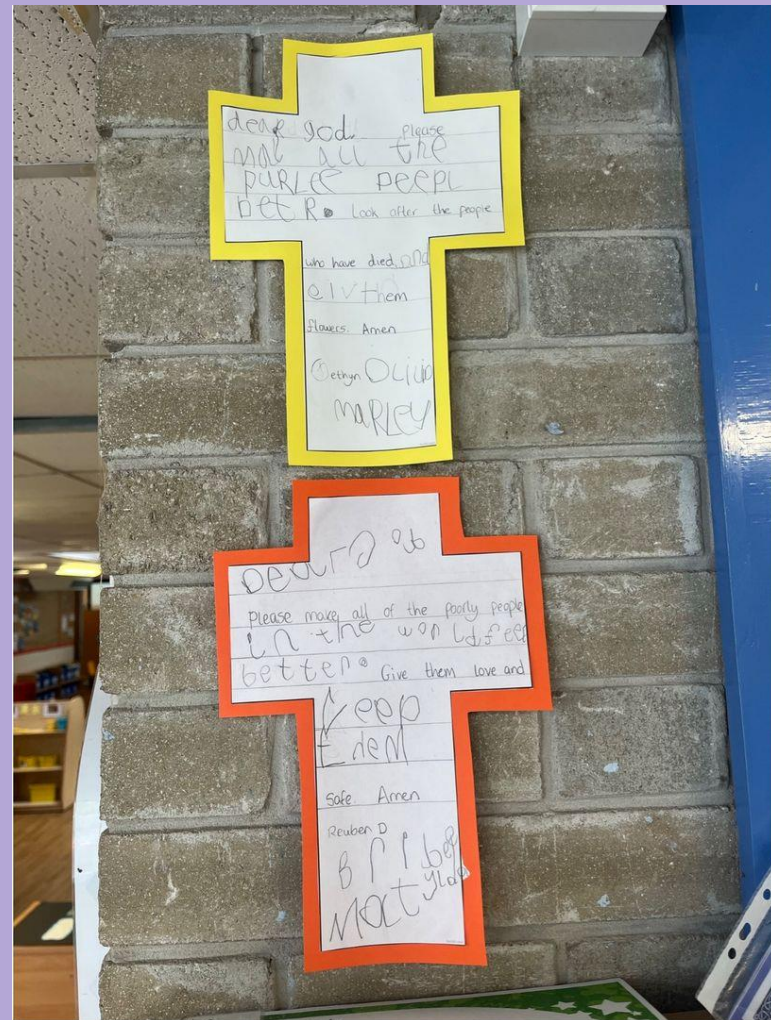 dear god. Please
mak all the
purlee peepl
betR. Look after the people
who have died, and
giv them
flowers. Amen
Gethyn Olivia
maRLEY
Dear
Please make all of the poorly people
in the world feel
better. Give them love and
keep
them
safe. Amen
Reuben D
Mat